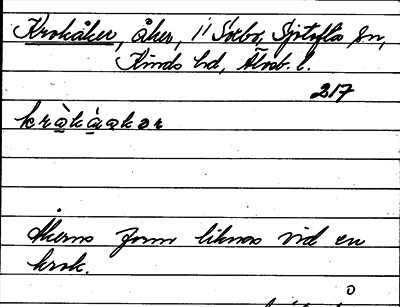 Krokåker, åker, 1/1 Sæbo, Sjötofta sn,
Kinds hd, Älvsb. l.
217
kràkàakər
Åkerns form liknas vid en
krok.